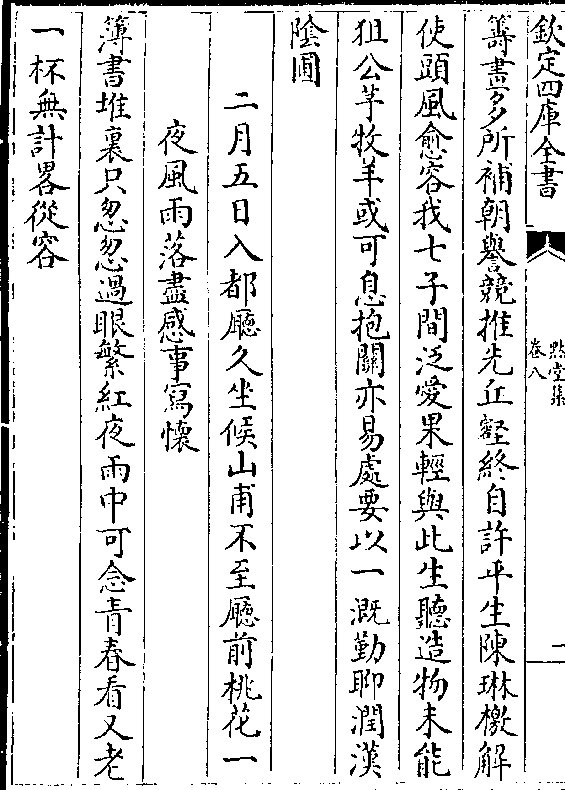 欽定四庫全書
㸃堂集
卷八
二
籌畫多所補朝譽競推先丘壑終自許平生陳琳檄解
使頭風愈容我七子間泛愛果輕與此生聽造物未能
狙公芧牧羊或可息抱關亦易處要以一溉勤聊潤漢
陰圃
二月五日入都廳久坐候山甫不至廳前桃花一
夜風雨落盡感事寫懷
簿書堆裏只忽忽過眼繁紅夜雨中可念青春看又老
一杯無計畧從容